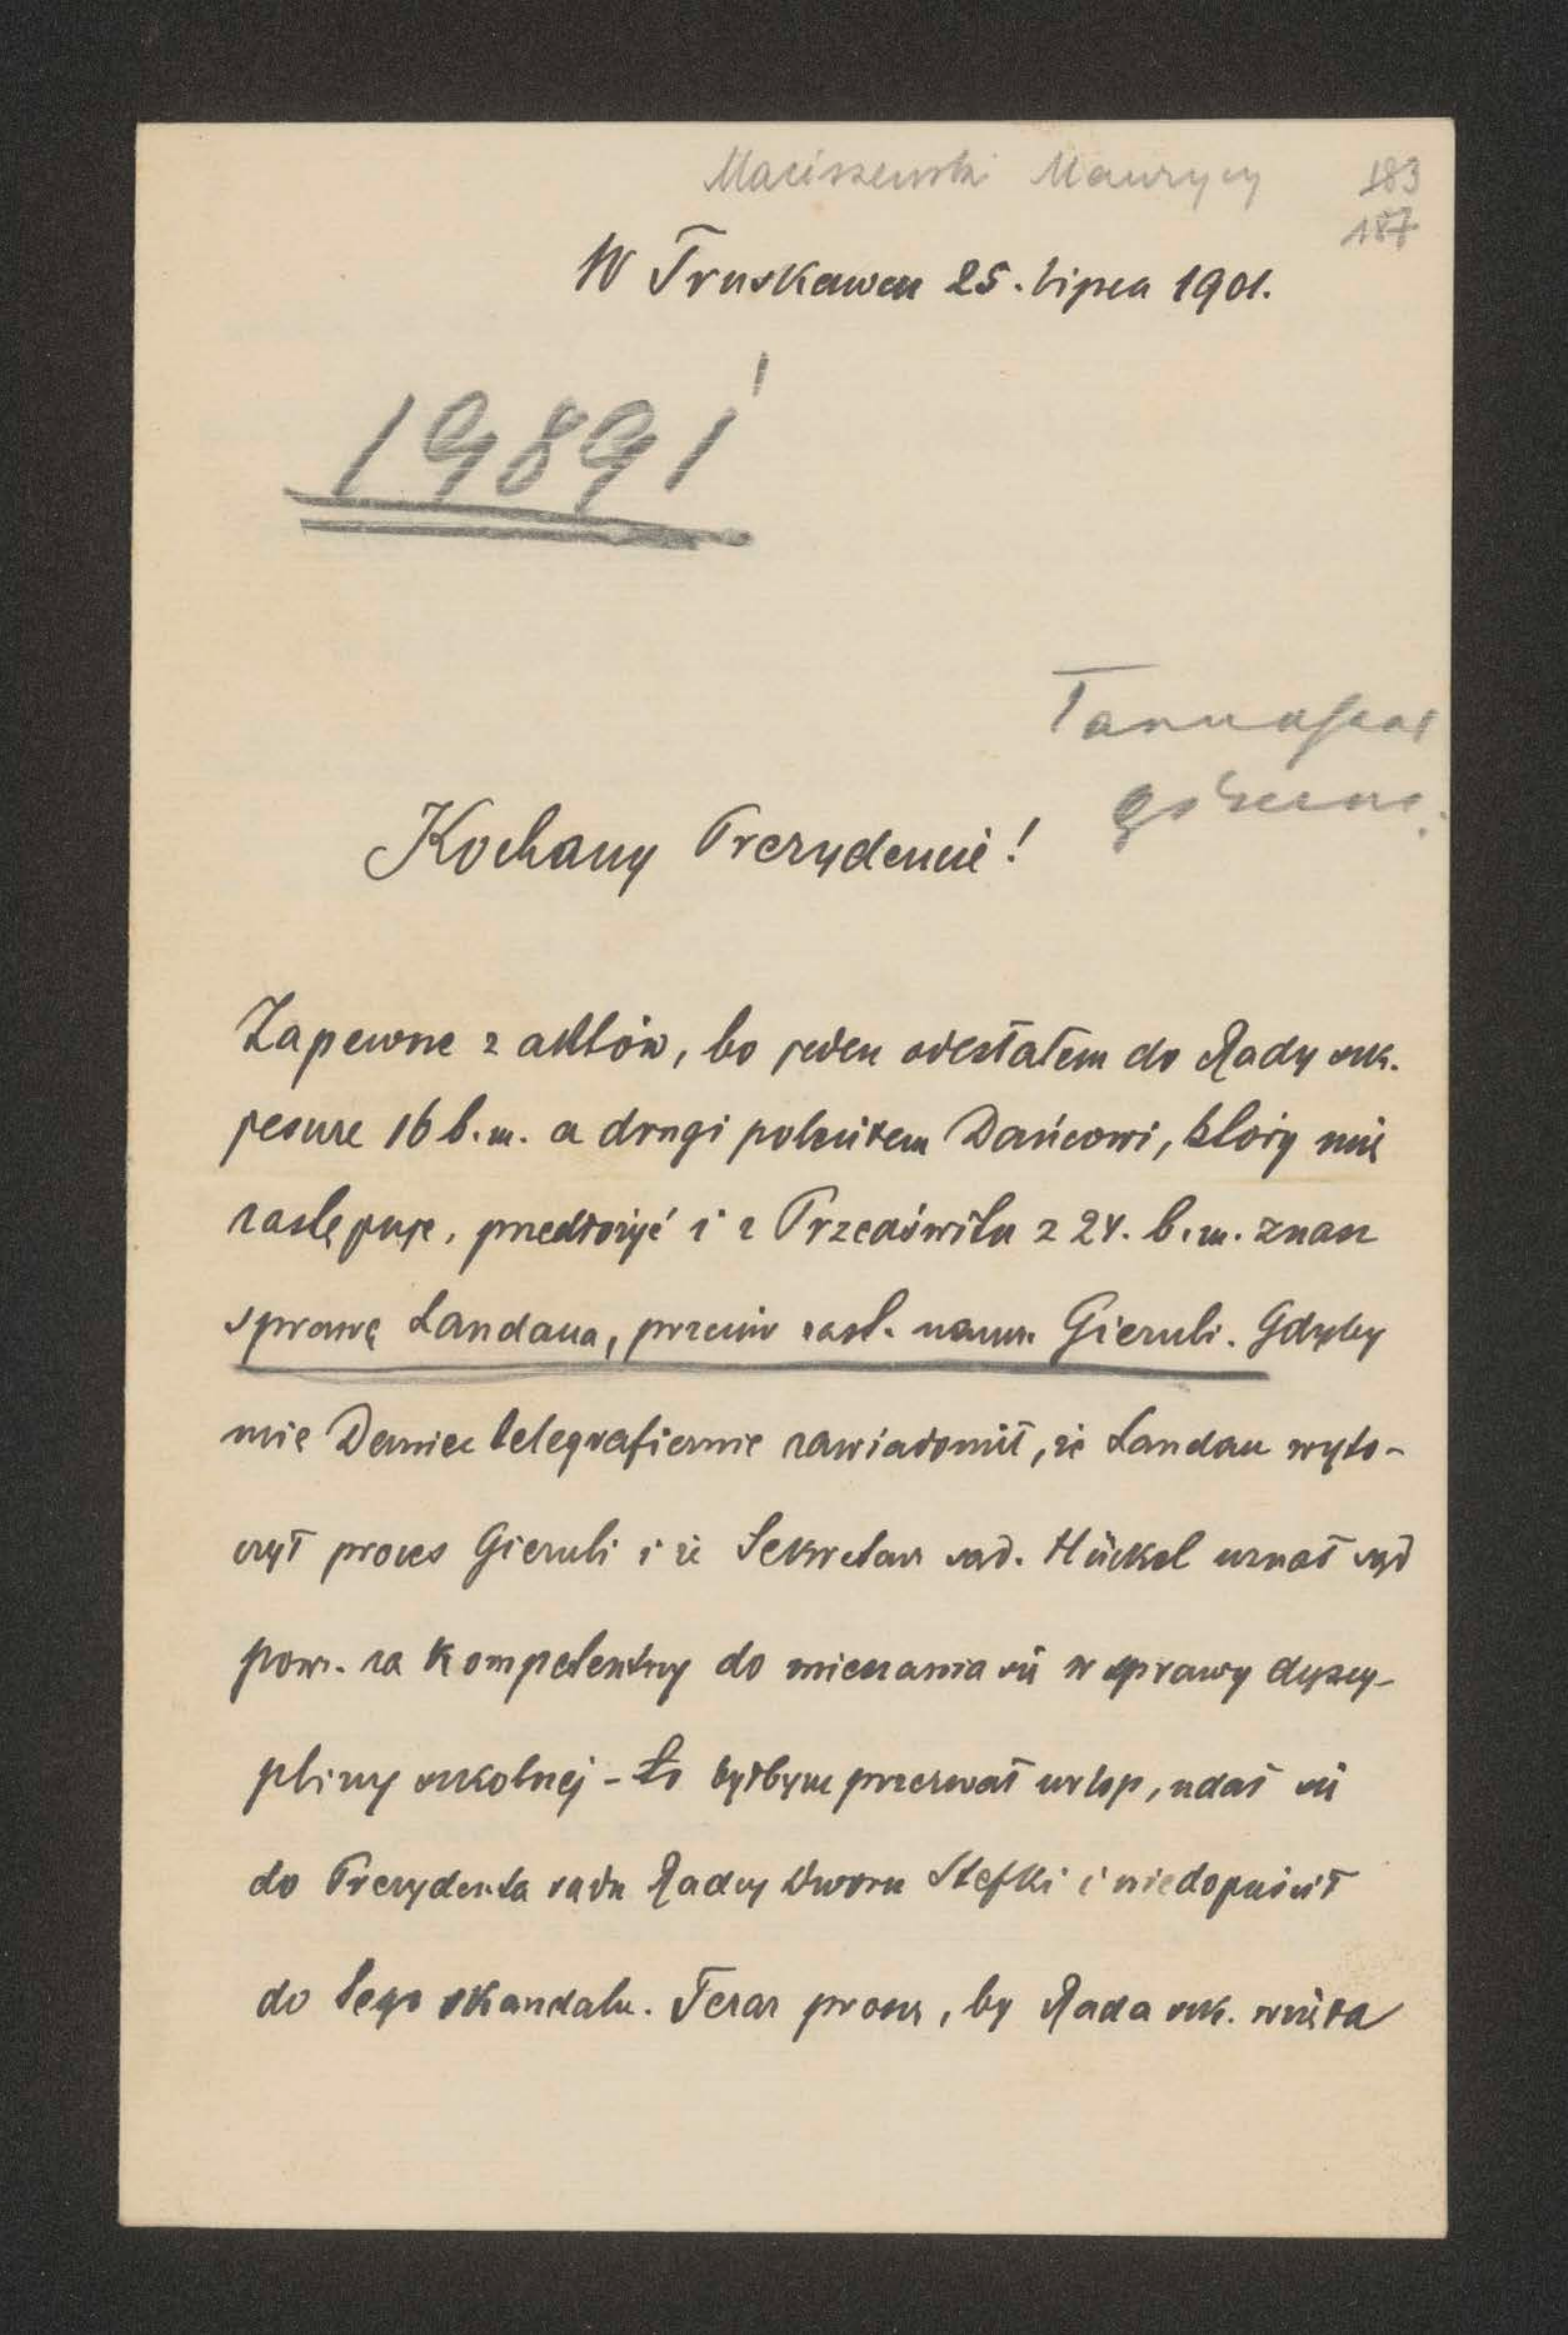 Maciszewski Maurycy 183
187
W Truskawcu 25. lipca 1901.
19891
Tarnopol
Kochany Prezydencie!
Zapewne z aktów, bo jeden odesłałem do Rady szk.
jeszcze 16 b.m. a drugi poleciłem Dańcowi, który mię
zastępuje, przedłożyć i z Przedświtu z 24. b.m. znasz
sprawę Landaua, przeciw zast. naucz. Gieruli. Gdyby
mię Daniec telegraficznie zawiadomił, że Landau wyto-
czył proces Gieruli i że Sekretarz sąd. Hückel uznał sąd
pow. za kompetentny do mieszania się w sprawy dyscy-
pliny szkolnej - to byłbym przerwał urlop, udał się
do Prezydenta sądu Radcy Dworu Stefki i niedopuścił
do tego skandalu. Teraz proszę, by Rada szk. wzięła